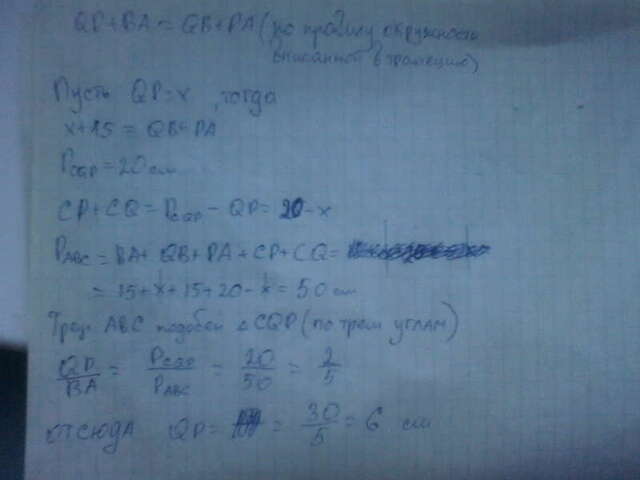 QP+BA = QB+PA (по правилу окружности
вписанной в трапецию)
Пусть QP=x, тогда
x+15 = QB+PA
P_CQP=20 см
CP+CQ=P_CQP - QP= 20-x
P_ABC = BA+ QB+PA+CP+CQ=
= 15+x+15+20-x = 50 см
Треуг. ABC подобен с CQP (по трем углам)
QP/BA = P_CQP/P_ABC = 20/50 = 2/5
отсюда QP= = 30/5 = 6 см